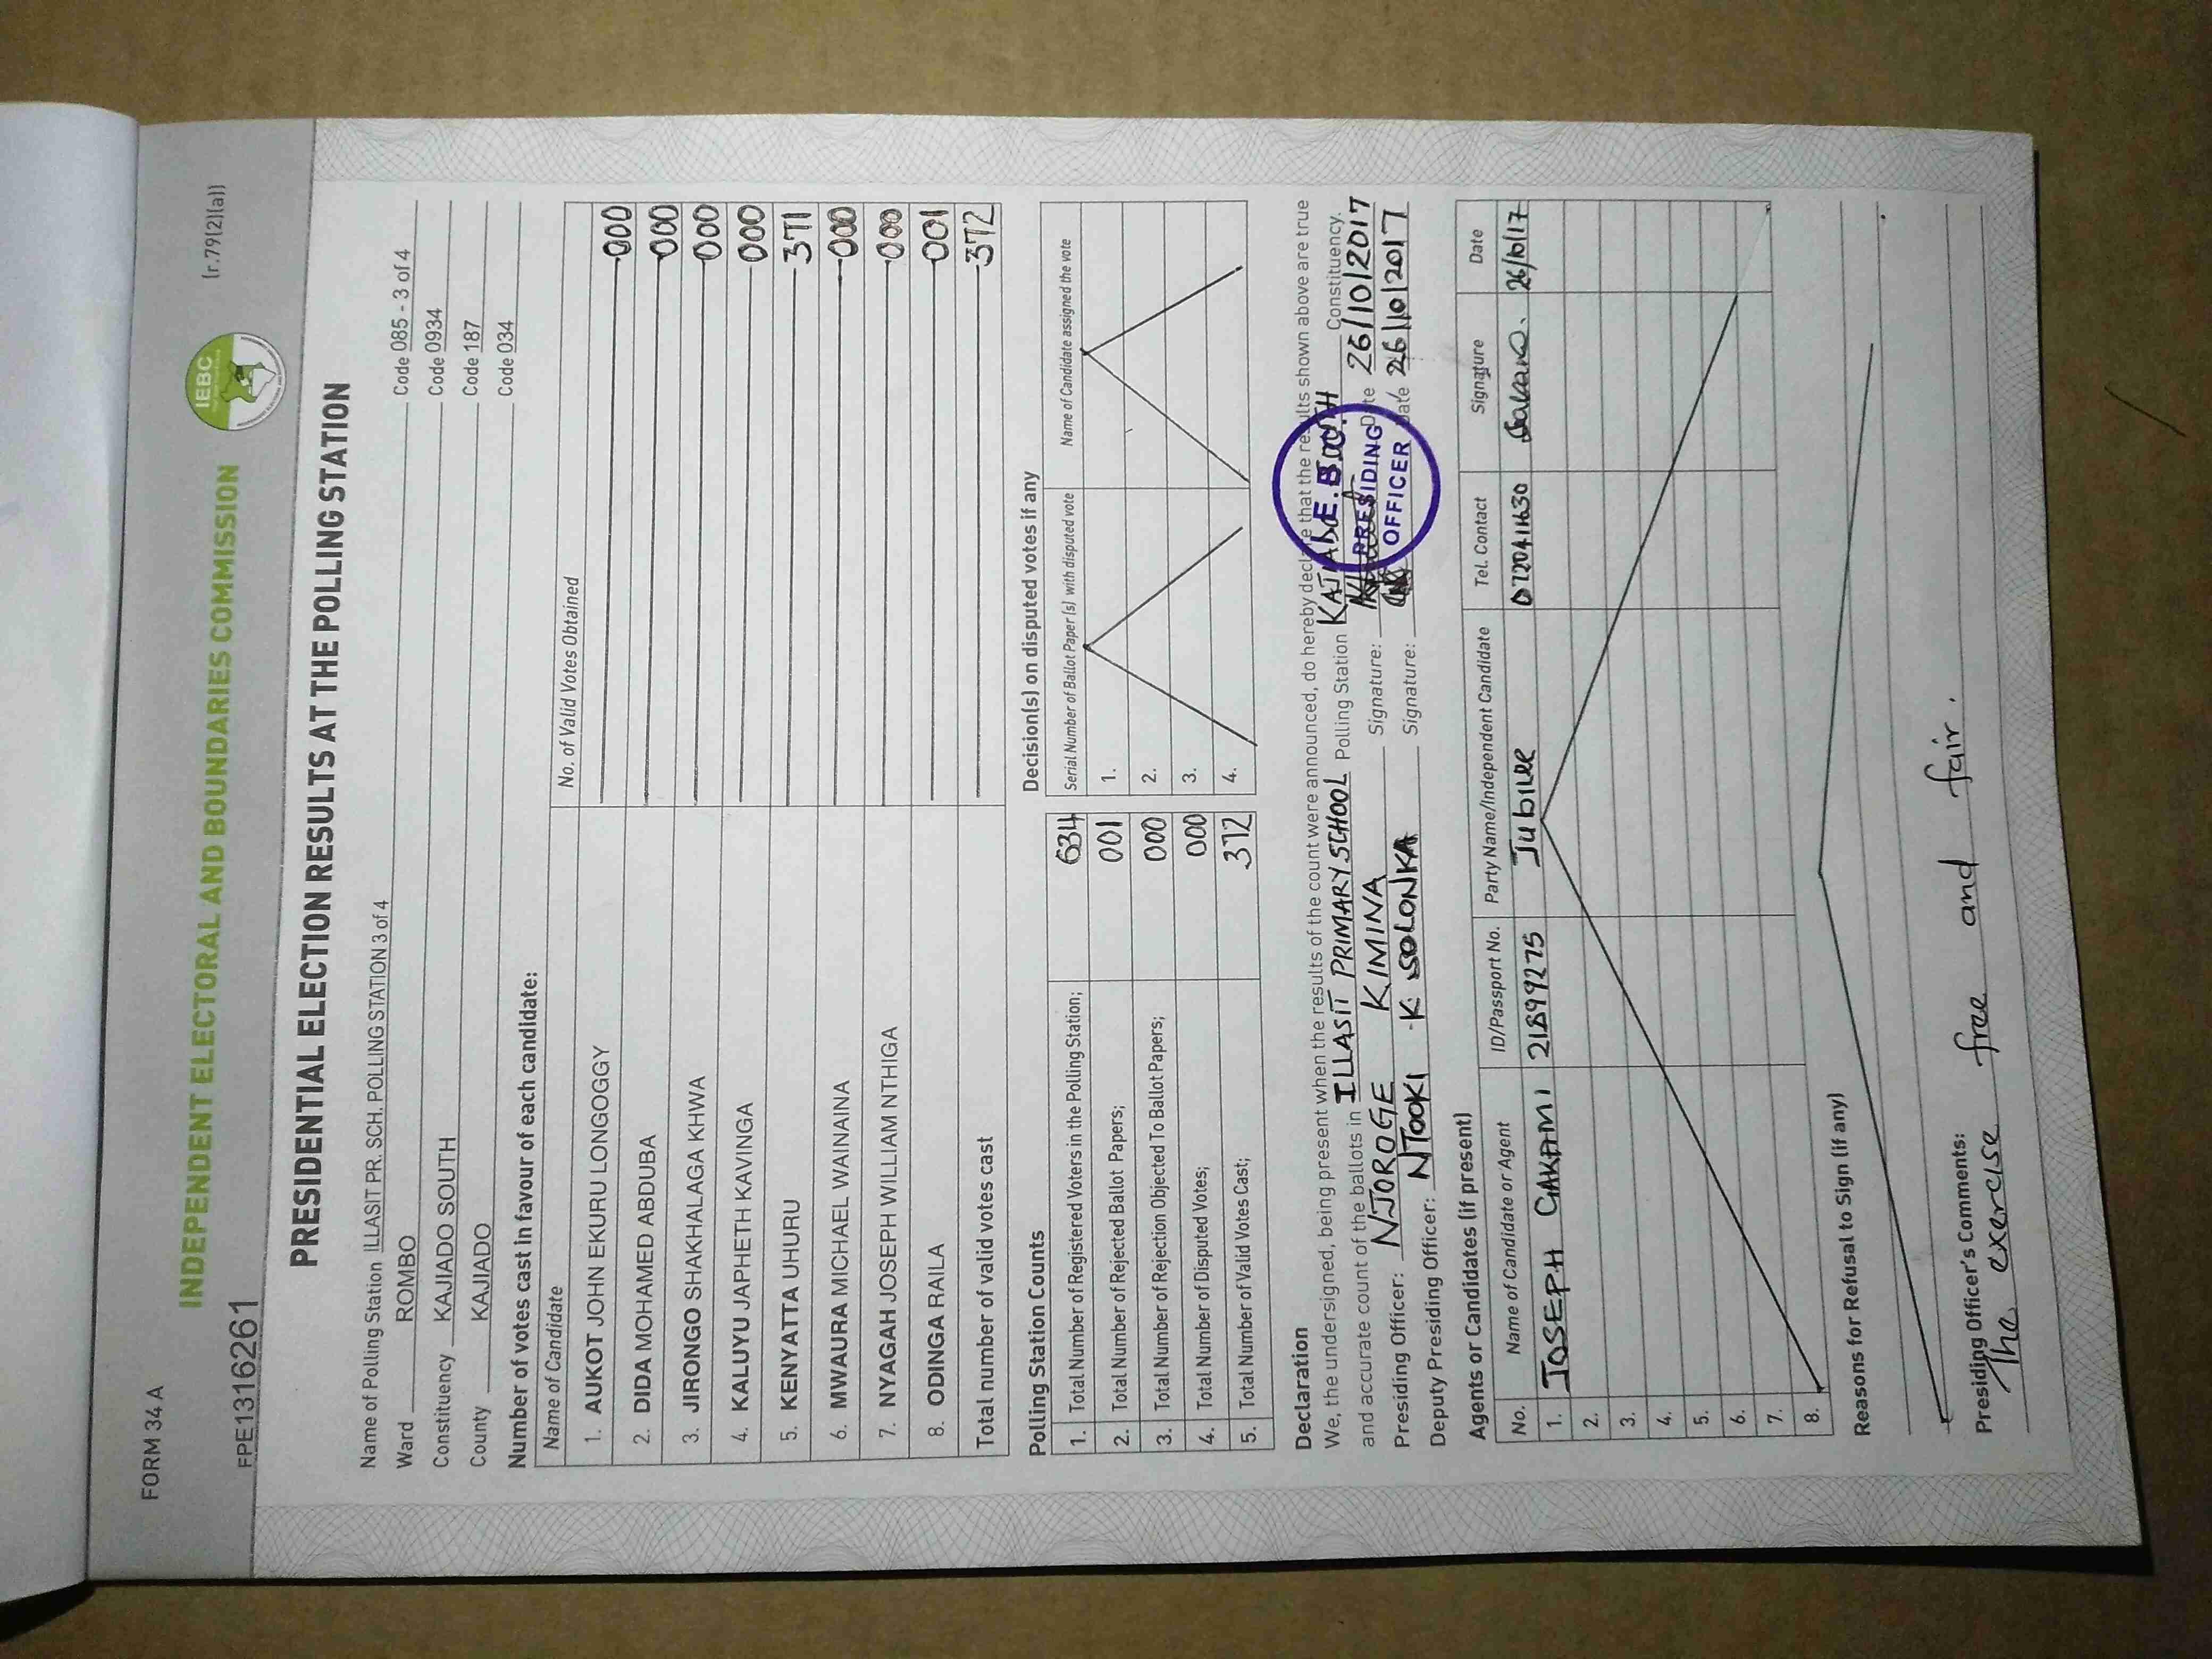 FORM 34 A
(r.79(2)(a))
IEBC
INDEPENDENT ELECTORAL AND BOUNDARIES COMMISSION
FPE1316261
PRESIDENTIAL ELECTION RESULTS AT THE POLLING STATION
Name of Polling Station ILLASIT PR. SCH. POLLING STATION 3 of 4 Code 085 - 3 of 4
Ward ROMBO Code 0934
Constituency KAJIADO SOUTH Code 187
County KAJIADO Code 034
Number of votes cast in favour of each candidate:
Name of Candidate No. of Valid Votes Obtained
1. AUKOT JOHN EKURU LONGOGGY 000
2. DIDA MOHAMED ABDUBA 000
3. JIRONGO SHAKHALAGA KHWA 000
4. KALUYU JAPHETH KAVINGA 000
5. KENYATTA UHURU 371
6. MWAURA MICHAEL WAINAINA 000
7. NYAGAH JOSEPH WILLIAM NTHIGA 000
8. ODINGA RAILA 001
Total number of valid votes cast 372
Polling Station Counts
1. Total Number of Registered Voters in the Polling Station; 634
2. Total Number of Rejected Ballot Papers; 001
3. Total Number of Rejection Objected To Ballot Papers; 000
4. Total Number of Disputed Votes; 000
5. Total Number of Valid Votes Cast; 372
Decision(s) on disputed votes if any
Serial Number of Ballot Paper (s) with disputed vote Name of Candidate assigned the vote
1.
2.
3.
4.
Declaration
We, the undersigned, being present when the results of the count were announced, do hereby declare that the results shown above are true
and accurate count of the ballots in ILLASIT PRIMARY SCHOOL Polling Station KAJIADO SOUTH Constituency.
Presiding Officer: NJOROGE KIMINA Signature: Date 26/10/2017
Deputy Presiding Officer: NTOOKI K SOLONKA Signature: Date 26/10/2017
PRESIDING
OFFICER
Agents or Candidates (if present)
No. Name of Candidate or Agent ID/Passport No. Party Name/Independent Candidate Tel. Contact Signature Date
1. JOSEPH GAKAMI 21899275 Jubilee 0720411630 26/10/17
2.
3.
4.
5.
6.
7.
8.
Reasons for Refusal to Sign (if any)
Presiding Officer's Comments:
The exercise free and fair.